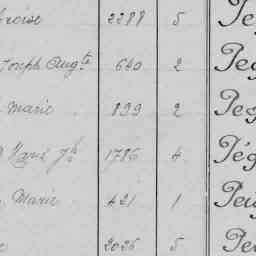 2288 5 Pe
Joseph Augte 640 2 Peg
Marie 899 2 Peg
Marie Jh 1786 4 Pég
Marie 421 1 Pei
2026 5 Pe